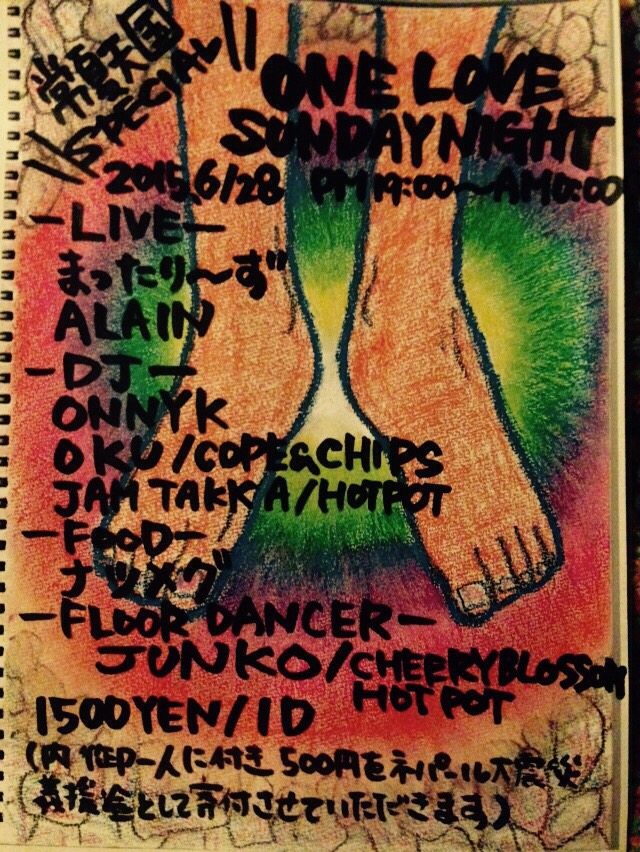 常夏天国
\\SPECIAL//
ONE LOVE
SUNDAY NIGHT
2015.6/28 PM19:00〜AM0:00
-LIVE-
まったり〜ず
ALAIN
-DJ-
ONNYK
OKU/COPE&CHIPS
JAM TAKKA/HOTPOT
-FOOD-
ナツメグ
-FLOOR DANCER-
JUNKO/CHEERYBLOSSOM
HOT POT
1500YEN/1D
(内 お一人に付き 500円をネパール大震災
義援金として寄付させていただきます。)